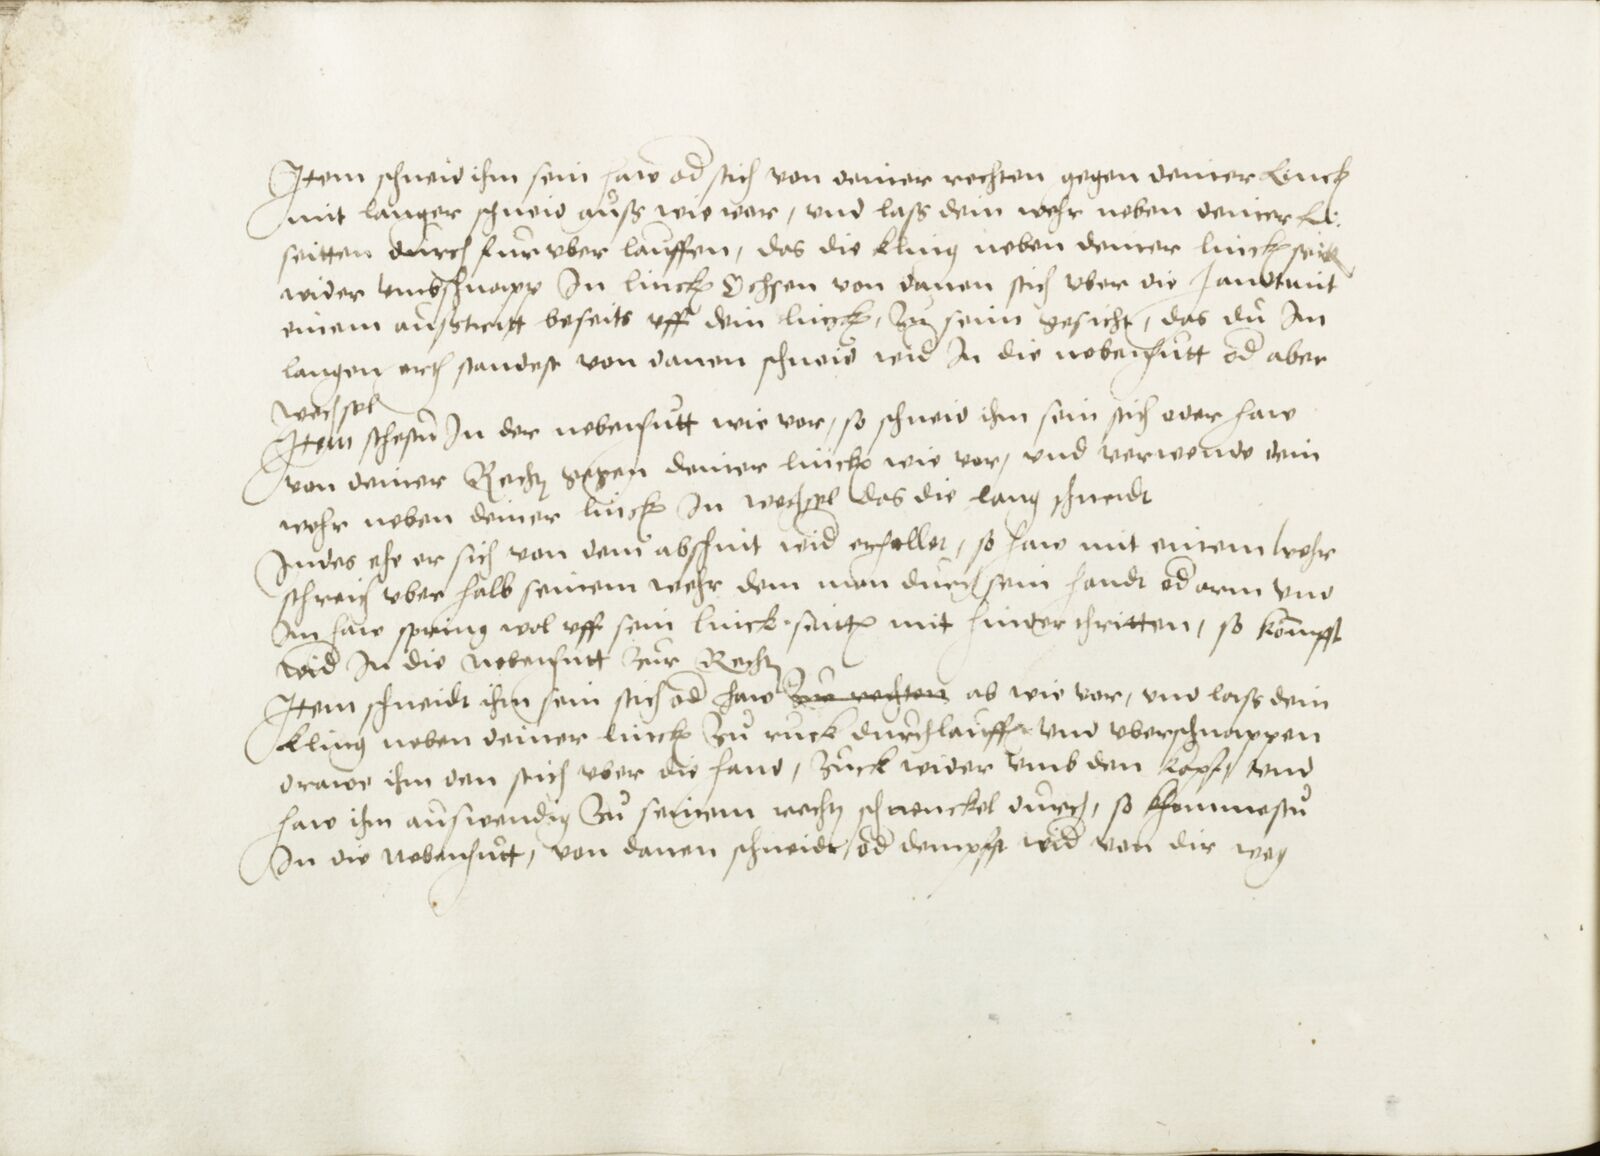 Item schneid ihm sein haw od stich von deiner rechten gegen deiner Linck
mit langer schneid auss wie vor, vnd lass dein wehr neben deiner L:
seitten durch fur vber lauffen, das die kling neben deiner linck seitt
wider vmbschnapp In linck Ochsen von danen stich vber die handt mit
einem ausstritt beseits vff dein linck, Zu seim gesicht, das du Im
langen ort standest von danen schneid wid In die nebenhutt od aber
wechsel
Item sthestu In der nebenhutt wie vor, so schneid ihm sein stich oder haw
von deiner Recht gegen deiner linck wie vor, vnd verwende dein
wehr neben deiner linck In wechsel das die lang schneidt
Indes ehe er sich von dem abschnit wid erhollet, so haw mit einem wehr
streich vber halb seinem wehr dem man durch sein handt od arm vnd
Im haw spring wol vff sein linck seitt mit hinder thritten, so kompst
wid In die Nebenhutt Zur Recht
Item schneidt ihm sein stich od haw Zur rechten ab wie vor, vnd lass dein
kling neben deiner linck Zu ruck durchlauff vnd vberschnappen
drawe ihm den stich vber die hand, Zuck wider vmb den kopff vnd
haw ihm auswendig Zu seinem recht schenckel durch, so khommestu
In die Nebenhutt, von danen schneidt, od dempfft wid von dir weg